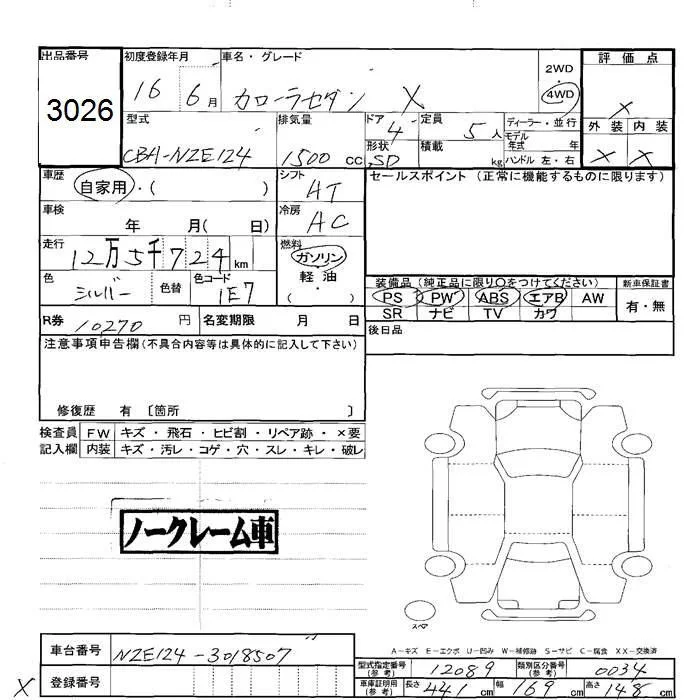 出品番号 初度登録年月 車名・グレード 2WD・4WD 評価点
3026 16 6月 カローラセダン X X
型式 排気量 ドア 4 定員 5人 ディーラー・並行 外装 内装
CBA-NZE124 1500cc 形状 SD 積載 kg モデル年式 年 ハンドル 左・右 X X
車歴 自家用・( ) シフト AT セールスポイント (正常に機能するものに限ります)
車検 年 月( 日) 冷房 AC
走行 12万5千724km 燃料 ガソリン・軽油・( )
色 シルバー 色替 色コード 1E7
装備品 (純正品に限り○をつけてください) 新車保証書
PS PW ABS エアB AW 有・無
SR ナビ TV カワ
R券 10270円 名変期限 月 日 後日品
注意事項申告欄(不具合内容等は具体的に記入して下さい)
修復歴 有 〔箇所 〕
検査員 FW キズ・飛石・ヒビ割・リペア跡・×要
記入欄 内装 キズ・汚レ・コゲ・穴・スレ・キレ・破レ
ノークレーム車
スペア
A−キズ E−エクボ U−凹み W−補修跡 S−サビ C−腐食 XX−交換済
車台番号 NZE124-3018507 型式指定番号(参考) 12089 類別区分番号(参考) 0034
X 登録番号 車庫証明用(参考) 長さ 441cm 幅 169cm 高さ 148cm